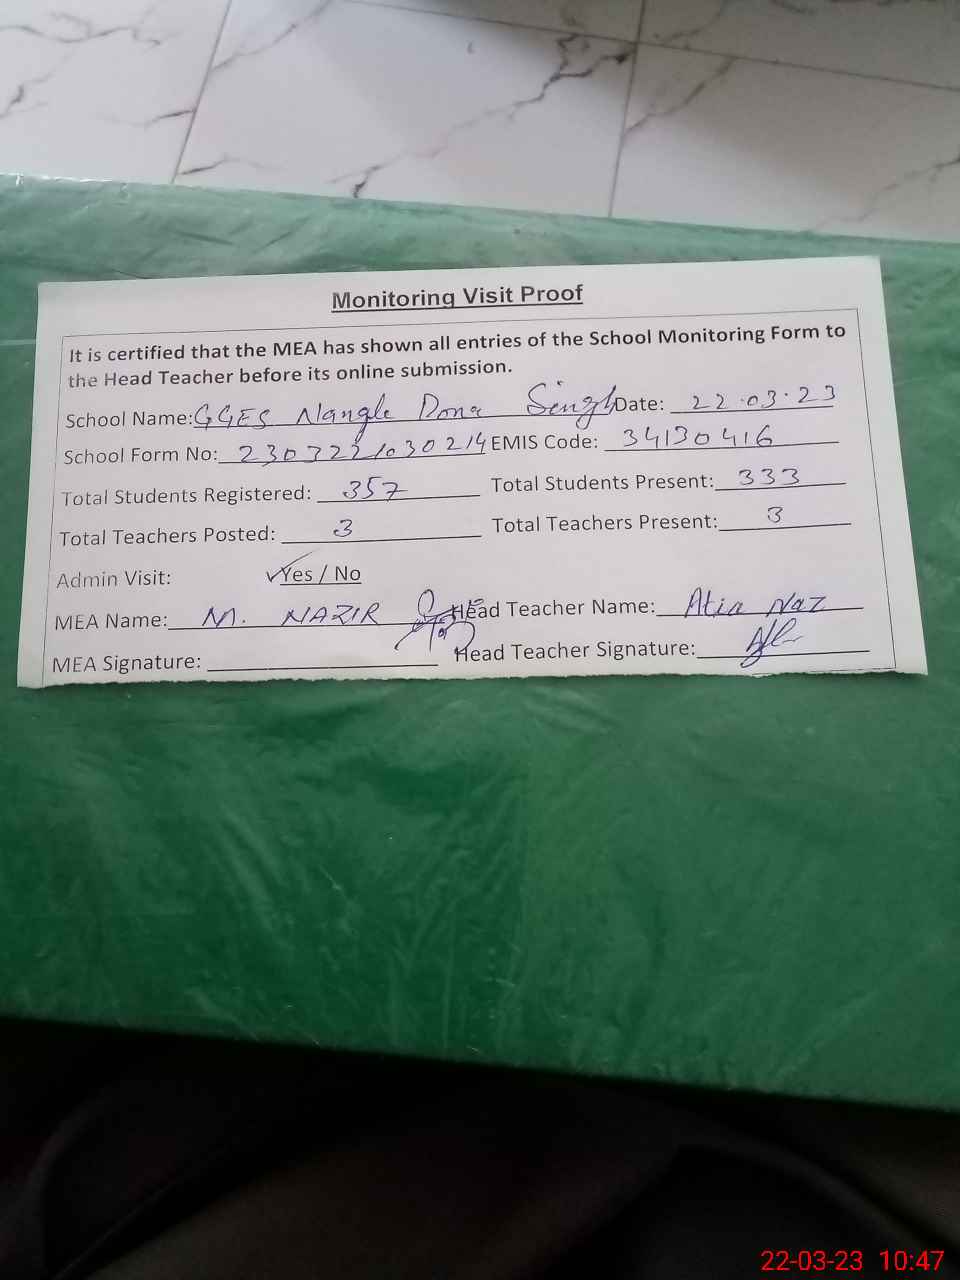 Monitoring Visit Proof
It is certified that the MEA has shown all entries of the School Monitoring Form to
the Head Teacher before its online submission.
School Name: GGES Nangle Dona Singh Date: 22.03.23
School Form No: EMIS Code: 34130416
Total Students Registered: 357 Total Students Present: 333
Total Teachers Posted: 3 Total Teachers Present: 3
Admin Visit: Yes / No
MEA Name: M. NAZIR Head Teacher Name: Atia Naz
MEA Signature: Head Teacher Signature:
22-03-23 10:47